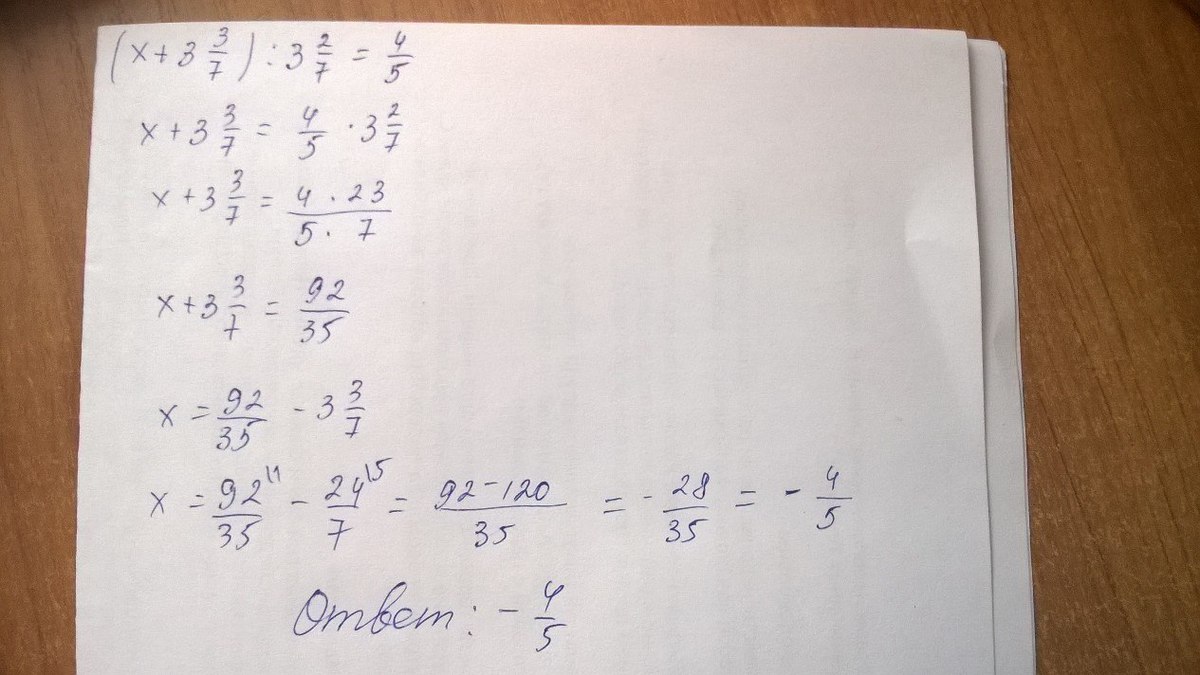 (x + 3 3/7) : 3 2/7 = 4/5
x + 3 3/7 = 4/5 · 3 2/7
x + 3 3/7 = 4 · 23 / 5 · 7
x + 3 3/7 = 92/35
x = 92/35 - 3 3/7
x = 92\1/35 - 24\5/7 = 92-120/35 = - 28/35 = - 4/5
Ответ: - 4/5